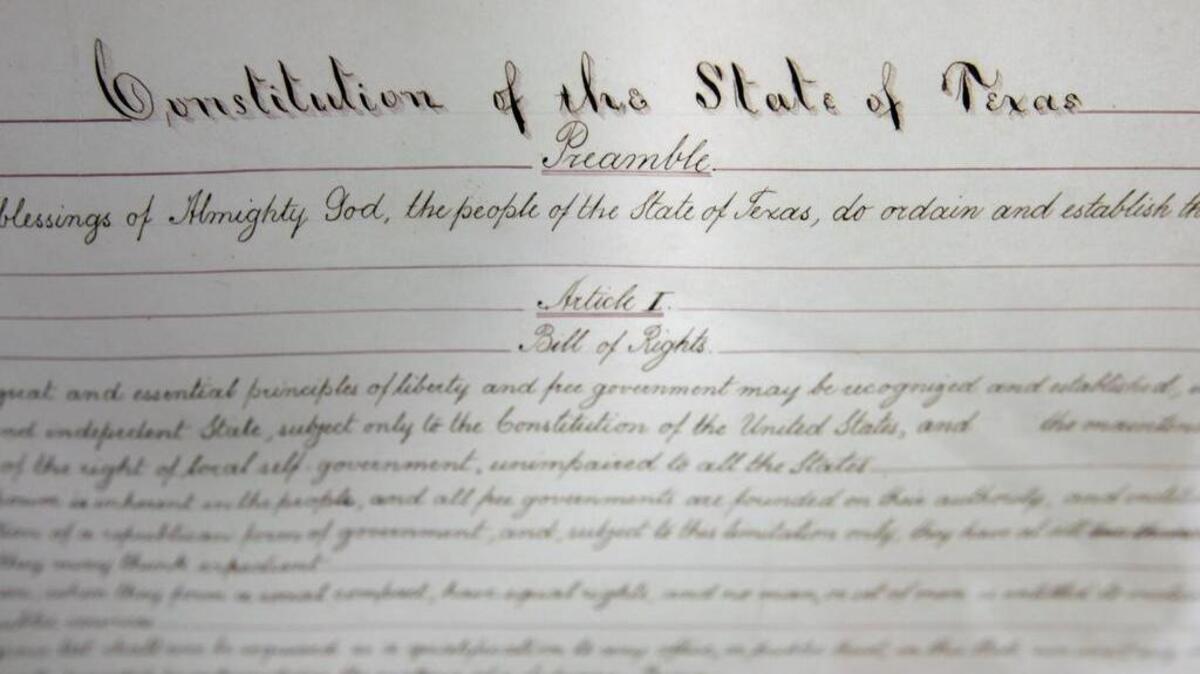 Constitution of the State of Texas
Preamble.
blessings of Almighty God, the people of the State of Texas, do ordain and establish th
Article I.
Bill of Rights.
great and essential principles of liberty and free government may be recognized and established,
and indepedent State, subject only to the Constitution of the United States, and the mainten
of the right of local self-government, unimpaired to all the States
power is inherent in the people, and all free governments are founded on their authority, and
of a republican form of government, and, subject to this limitation only, they have at all
they may think expedient
when they form a social compact, have equal rights, and no man, or set of men is entitled to
shall ever be required as a qualification to any office, or public trust, in this